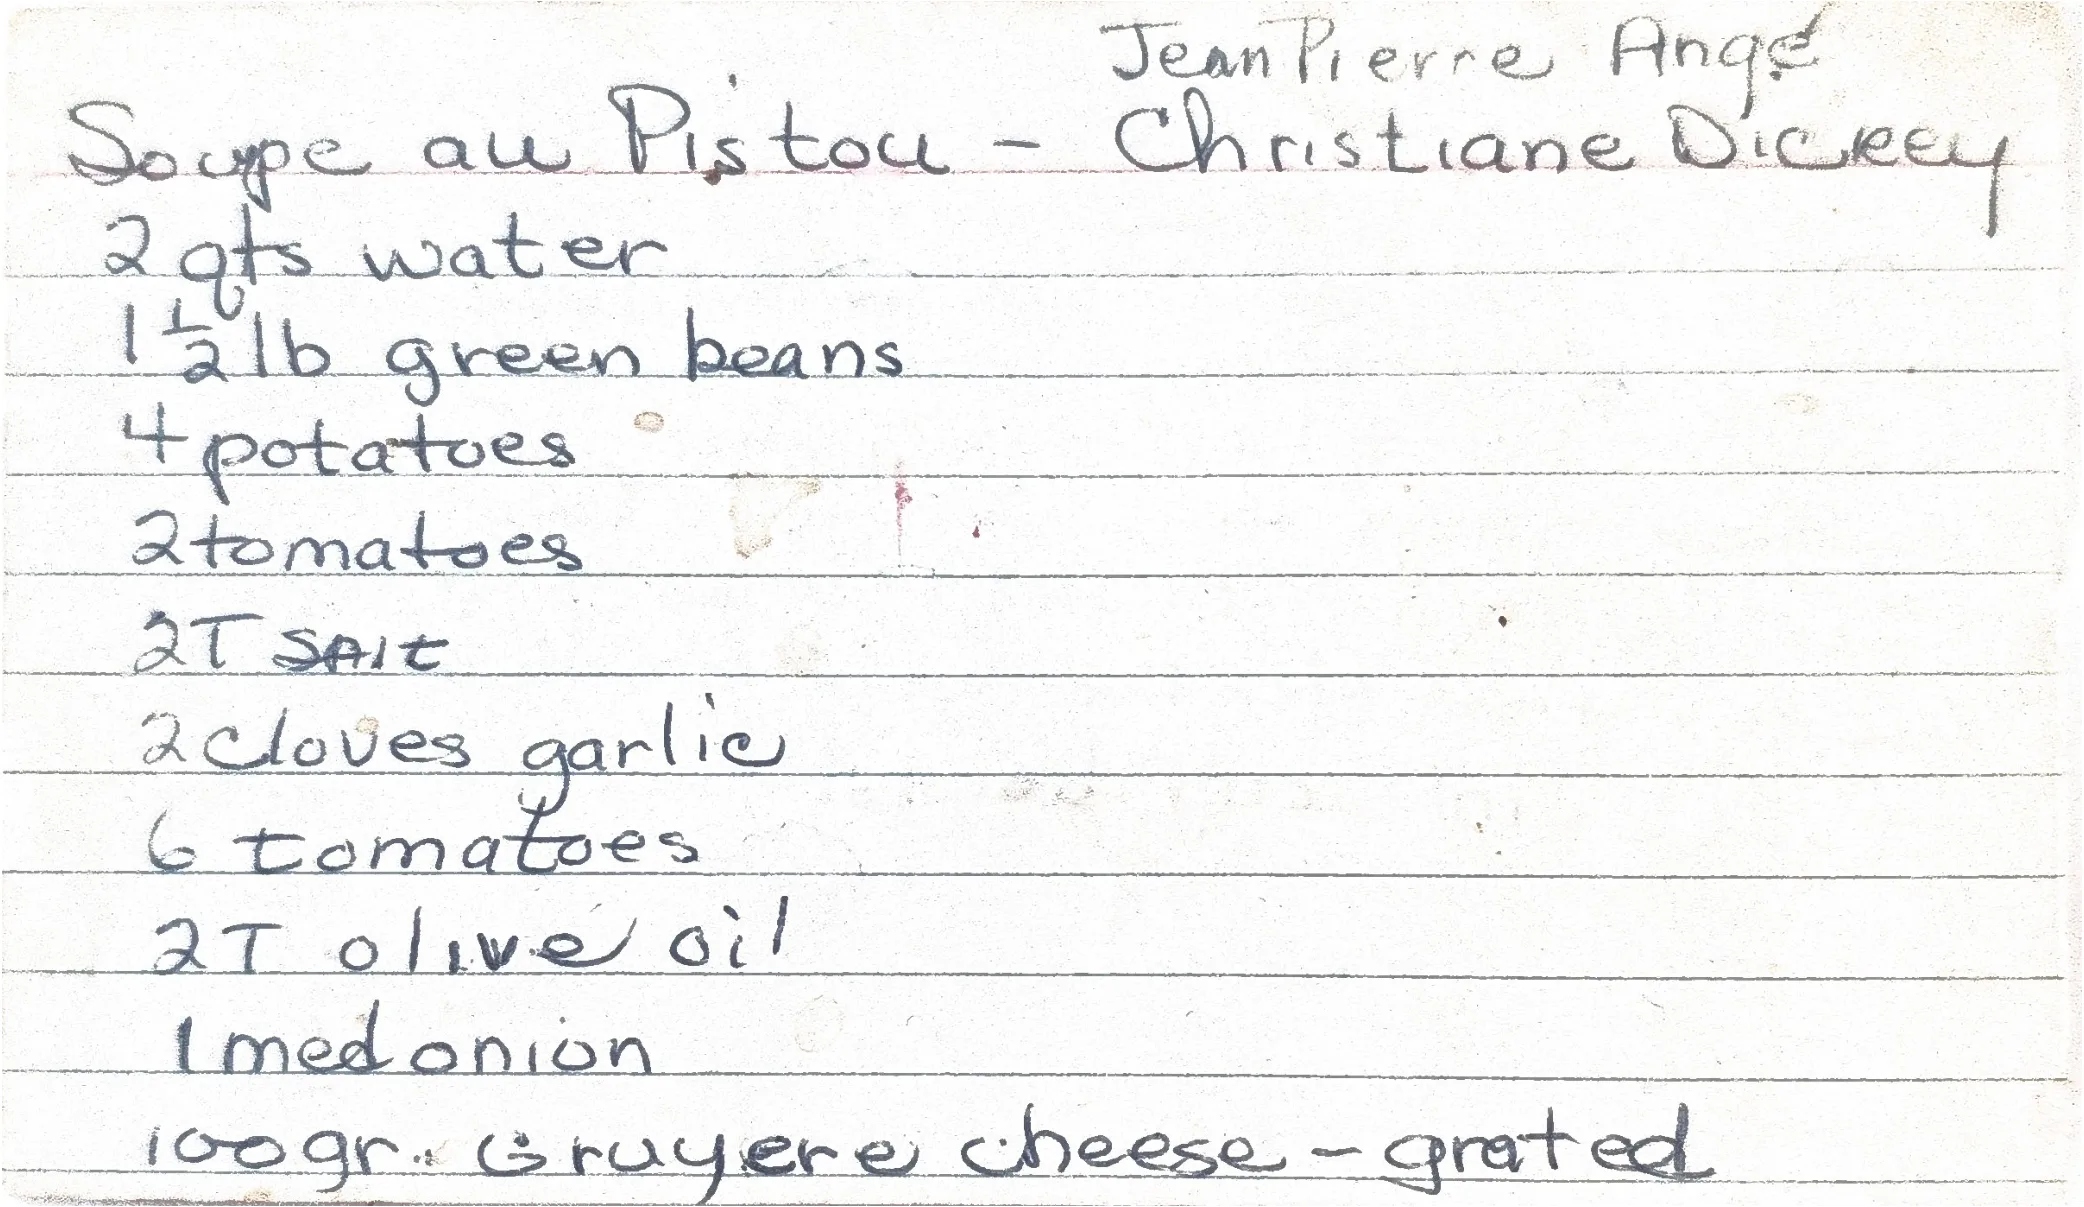 Jean Pierre Angé
Soupe au Pistou - Christiane Dickey
2 qts water
1 1/2 lb green beans
4 potatoes
2 tomatoes
2T SAlt
2 cloves garlic
6 tomatoes
2T olive oil
1 med onion
100 gr. Gruyere cheese - grated